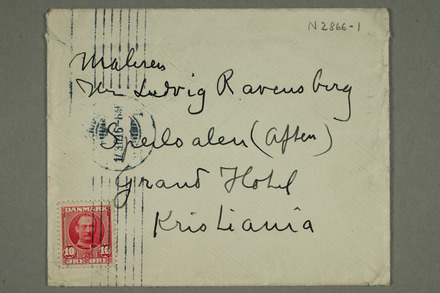 N 2866-1
Maleren
Hr. Ludvig Ravensberg
Speilsalen (Aften)
Grand Hotel
Kristiania
DANMARK
10 10
ØRE ØRE